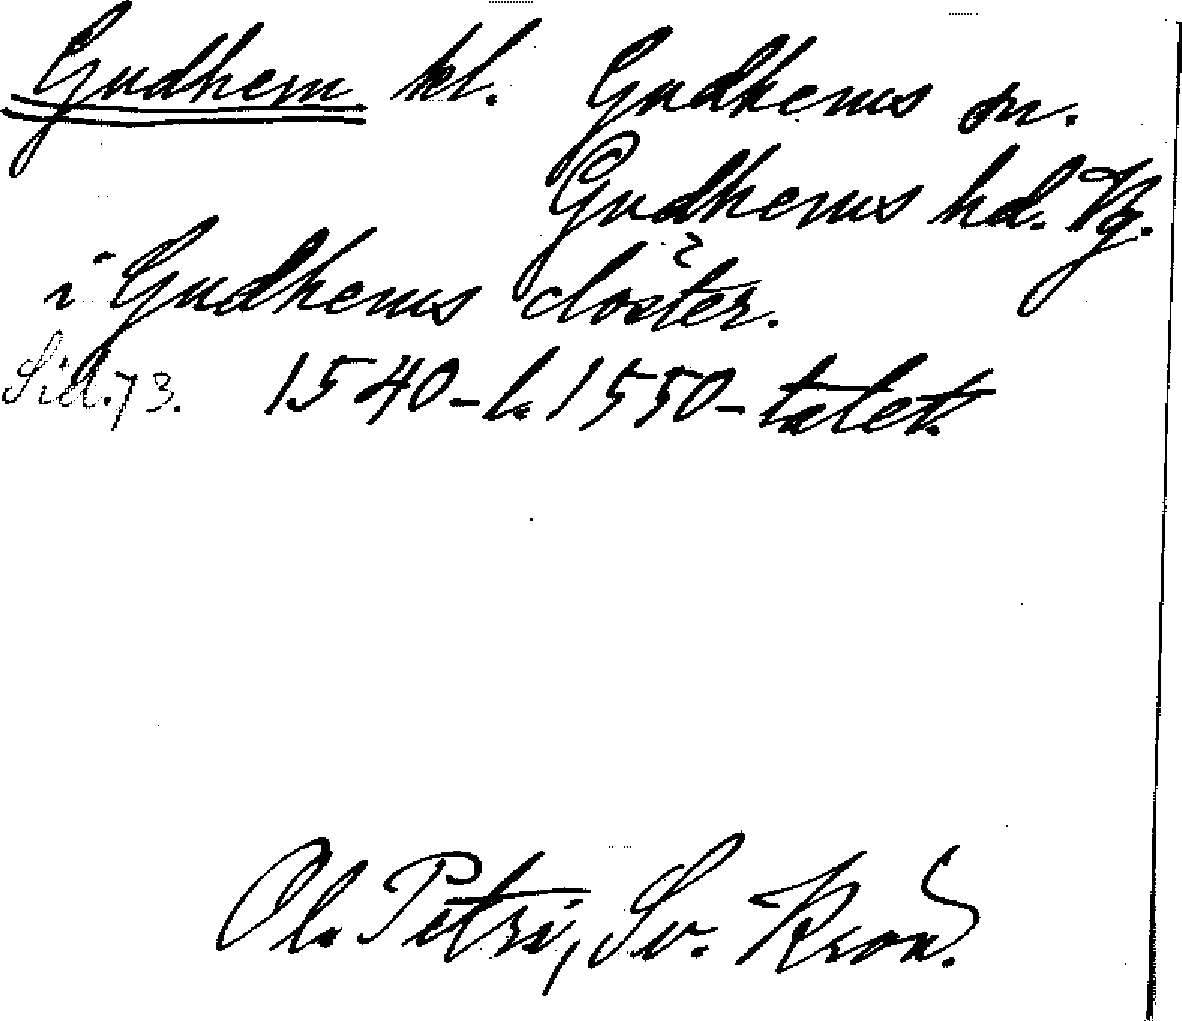 Gudhem kl. Gudhems sn.
Gudhems hd. Vg.
i Gudhems closter.
Sid. 73. 1540- l. 1550-talet.
Ol. Petri, Sv. Krön.